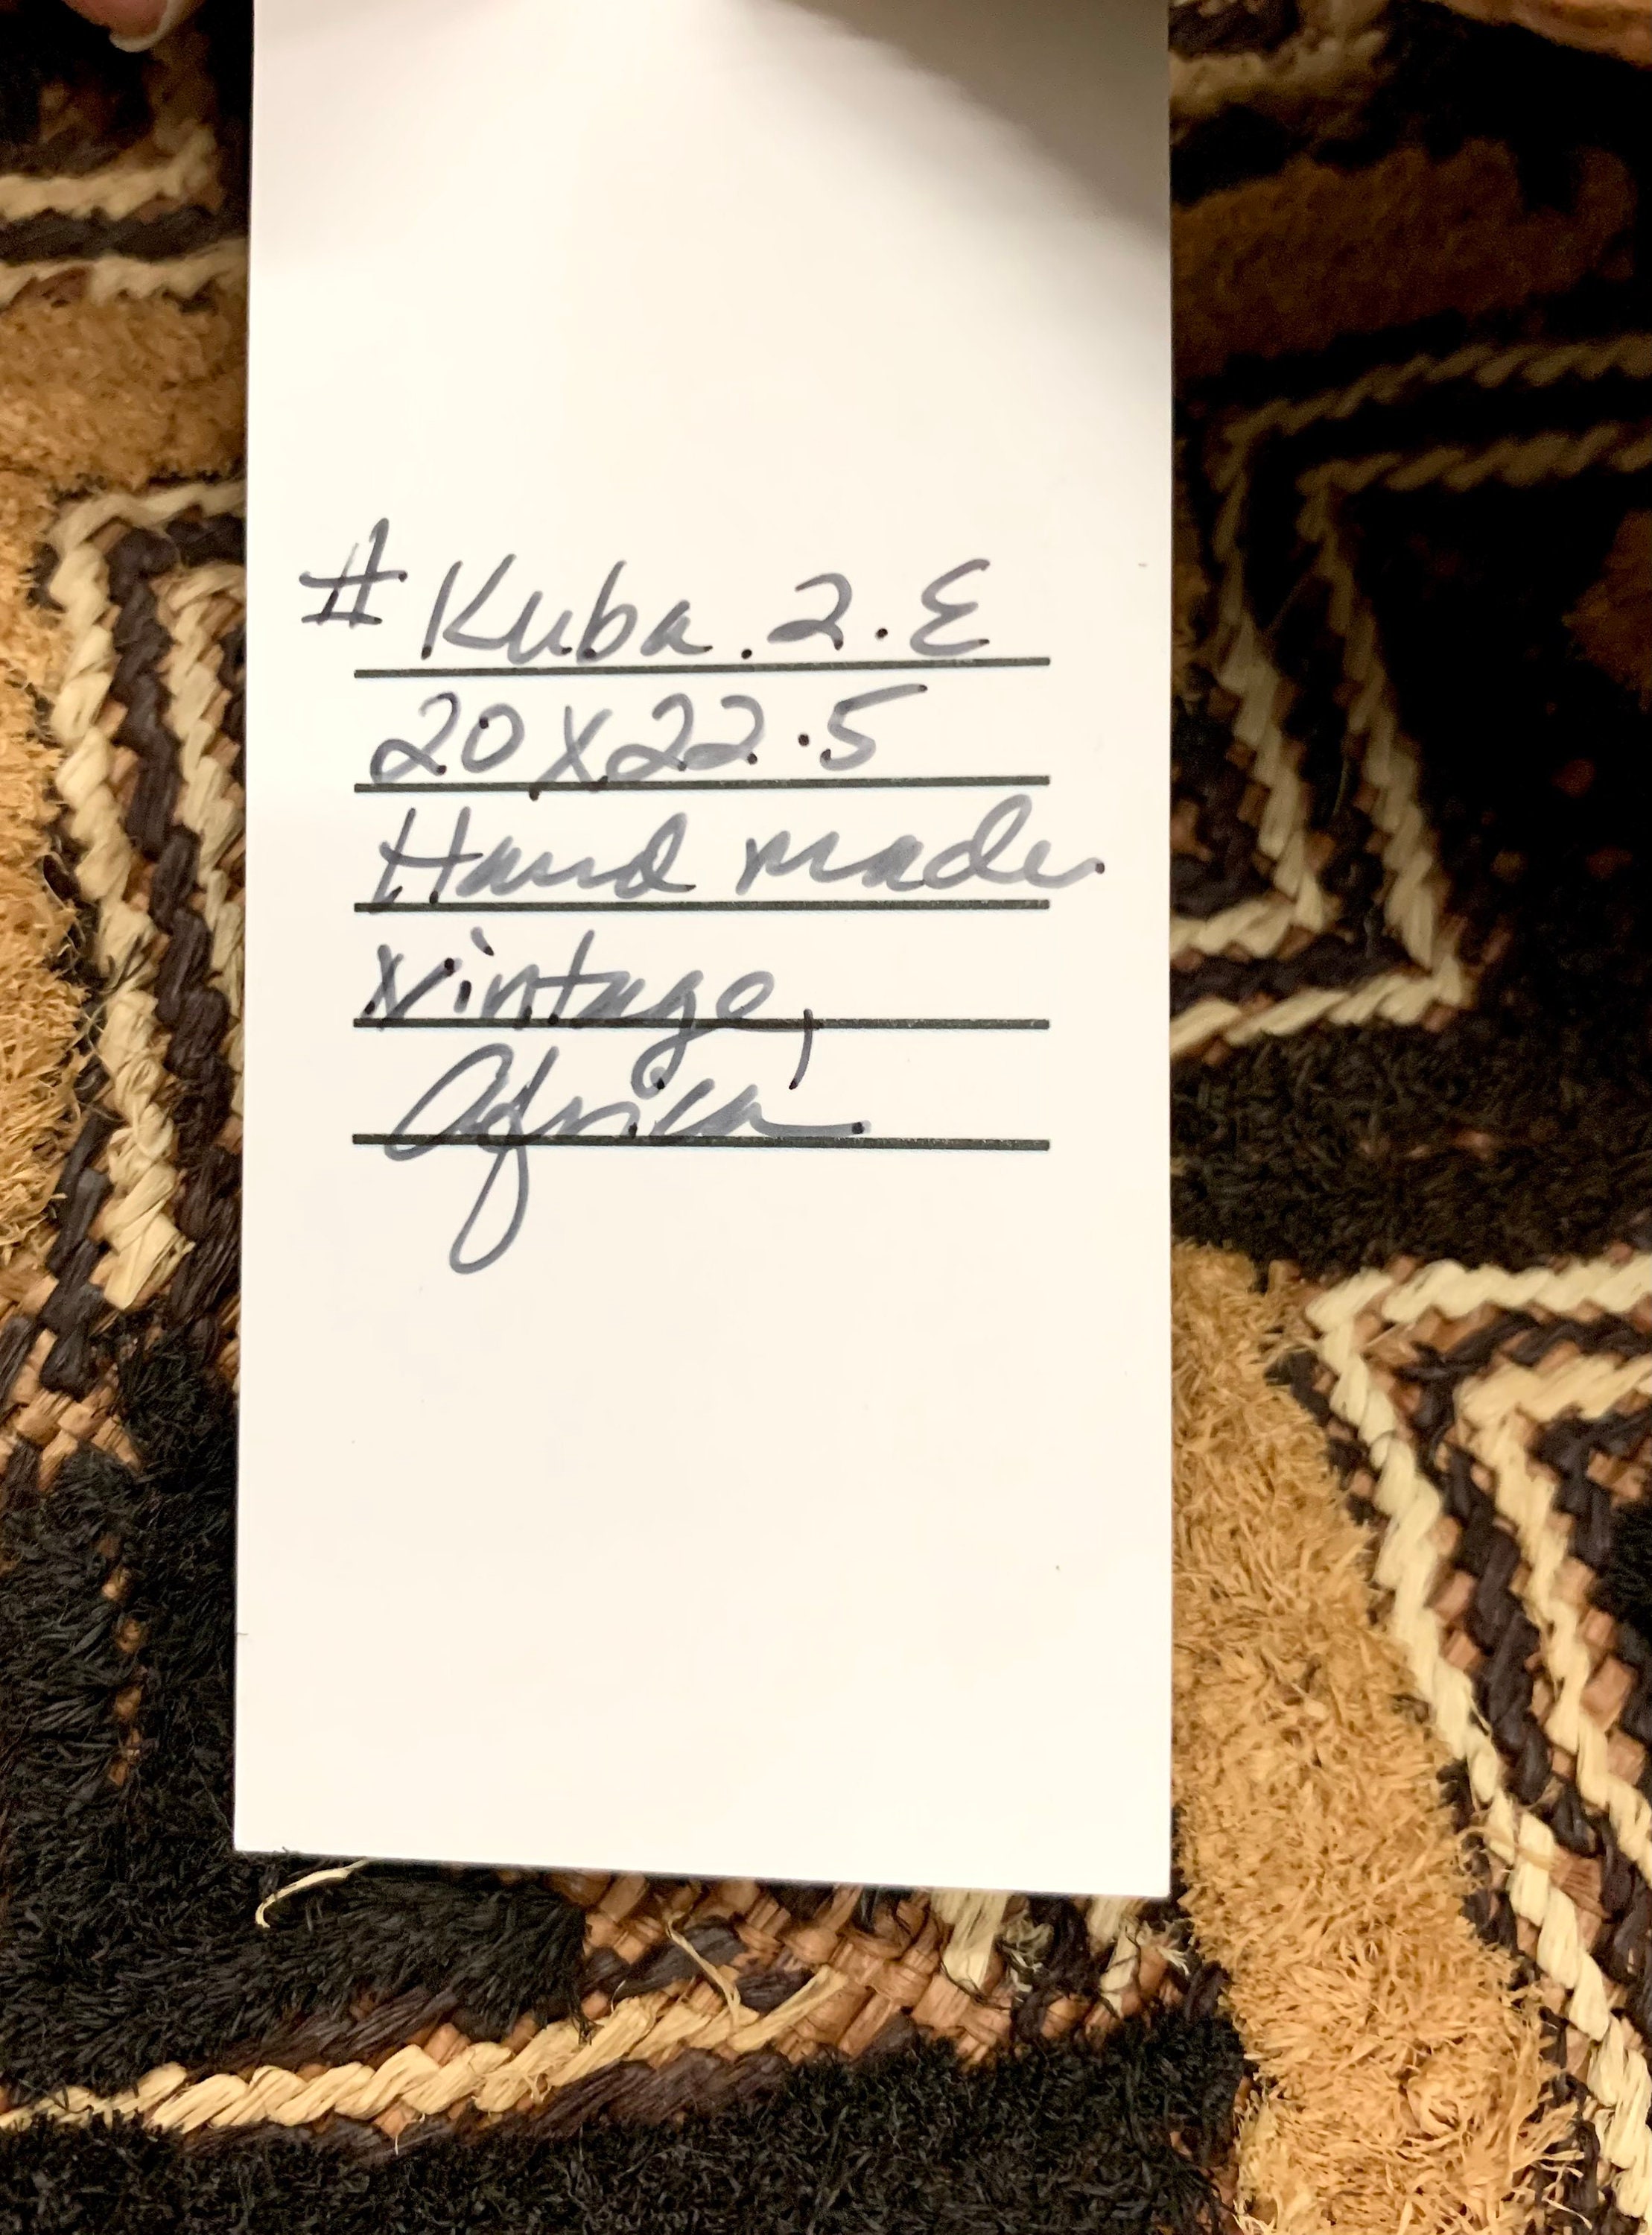 # Kuba.2.E
20X22.5
Hand made
Vintage,
Africa